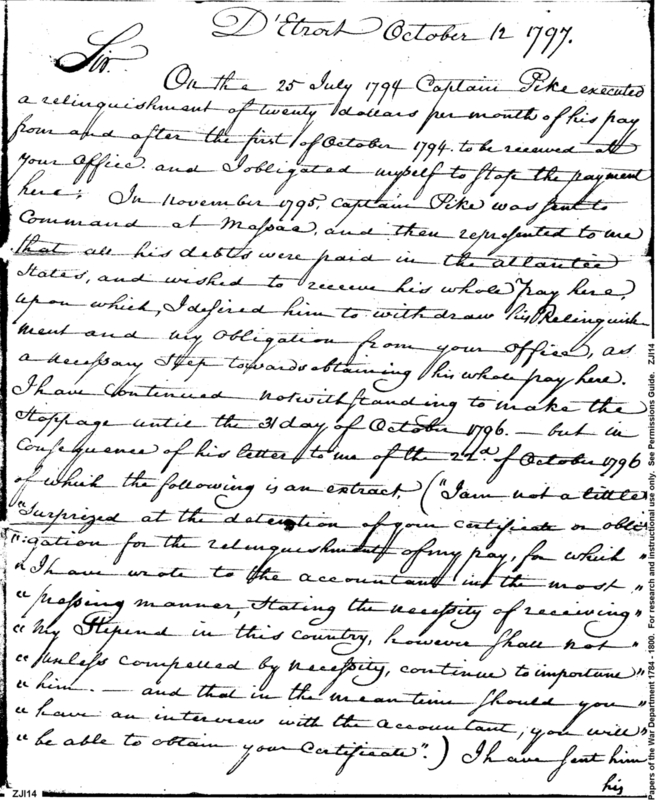 D'Etroit October 12 1797.
Sir.
On the 25 July 1794 Captain Pike executed
a relinquishment of twenty dollars per month of his pay
from and after the first of October 1794. to be received at
your Office. and I obligated myself to stop the payment
here. In November 1795, Captain Pike was sent to
Command at Massac, and then represented to me
that all his debts were paid in the atlantic
States, and wished to receive his whole pay here,
upon which, I desired him to withdraw his Relinquish
ment and my obligation from your office, as
a necessary Step towards obtaining his whole pay here.
I have continued notwithstanding to make the
Stoppage until the 31 day of October 1796. — but in
Consequence of his letter to me of the 22d of October 1796
of which the following is an extract, ("I am not a little
"Surprized at the detention of your certificate or obli"
":gation for the relinquishment of my pay, for which "
"I have wrote to the accountant in the most "
"pressing manner, Stating the necessity of receiving "
"my Stipend in this country, however shall not "
"unless compelled by necessity, continue to importune "
"him. — and that in the mean time should you "
"have an interview with the accountant, you will "
"be able to obtain your Certificate".) I have sent him
his
ZJI14
Papers of the War Department 1784 - 1800. For research and instructional use only. See Permissions Guide. ZJI14